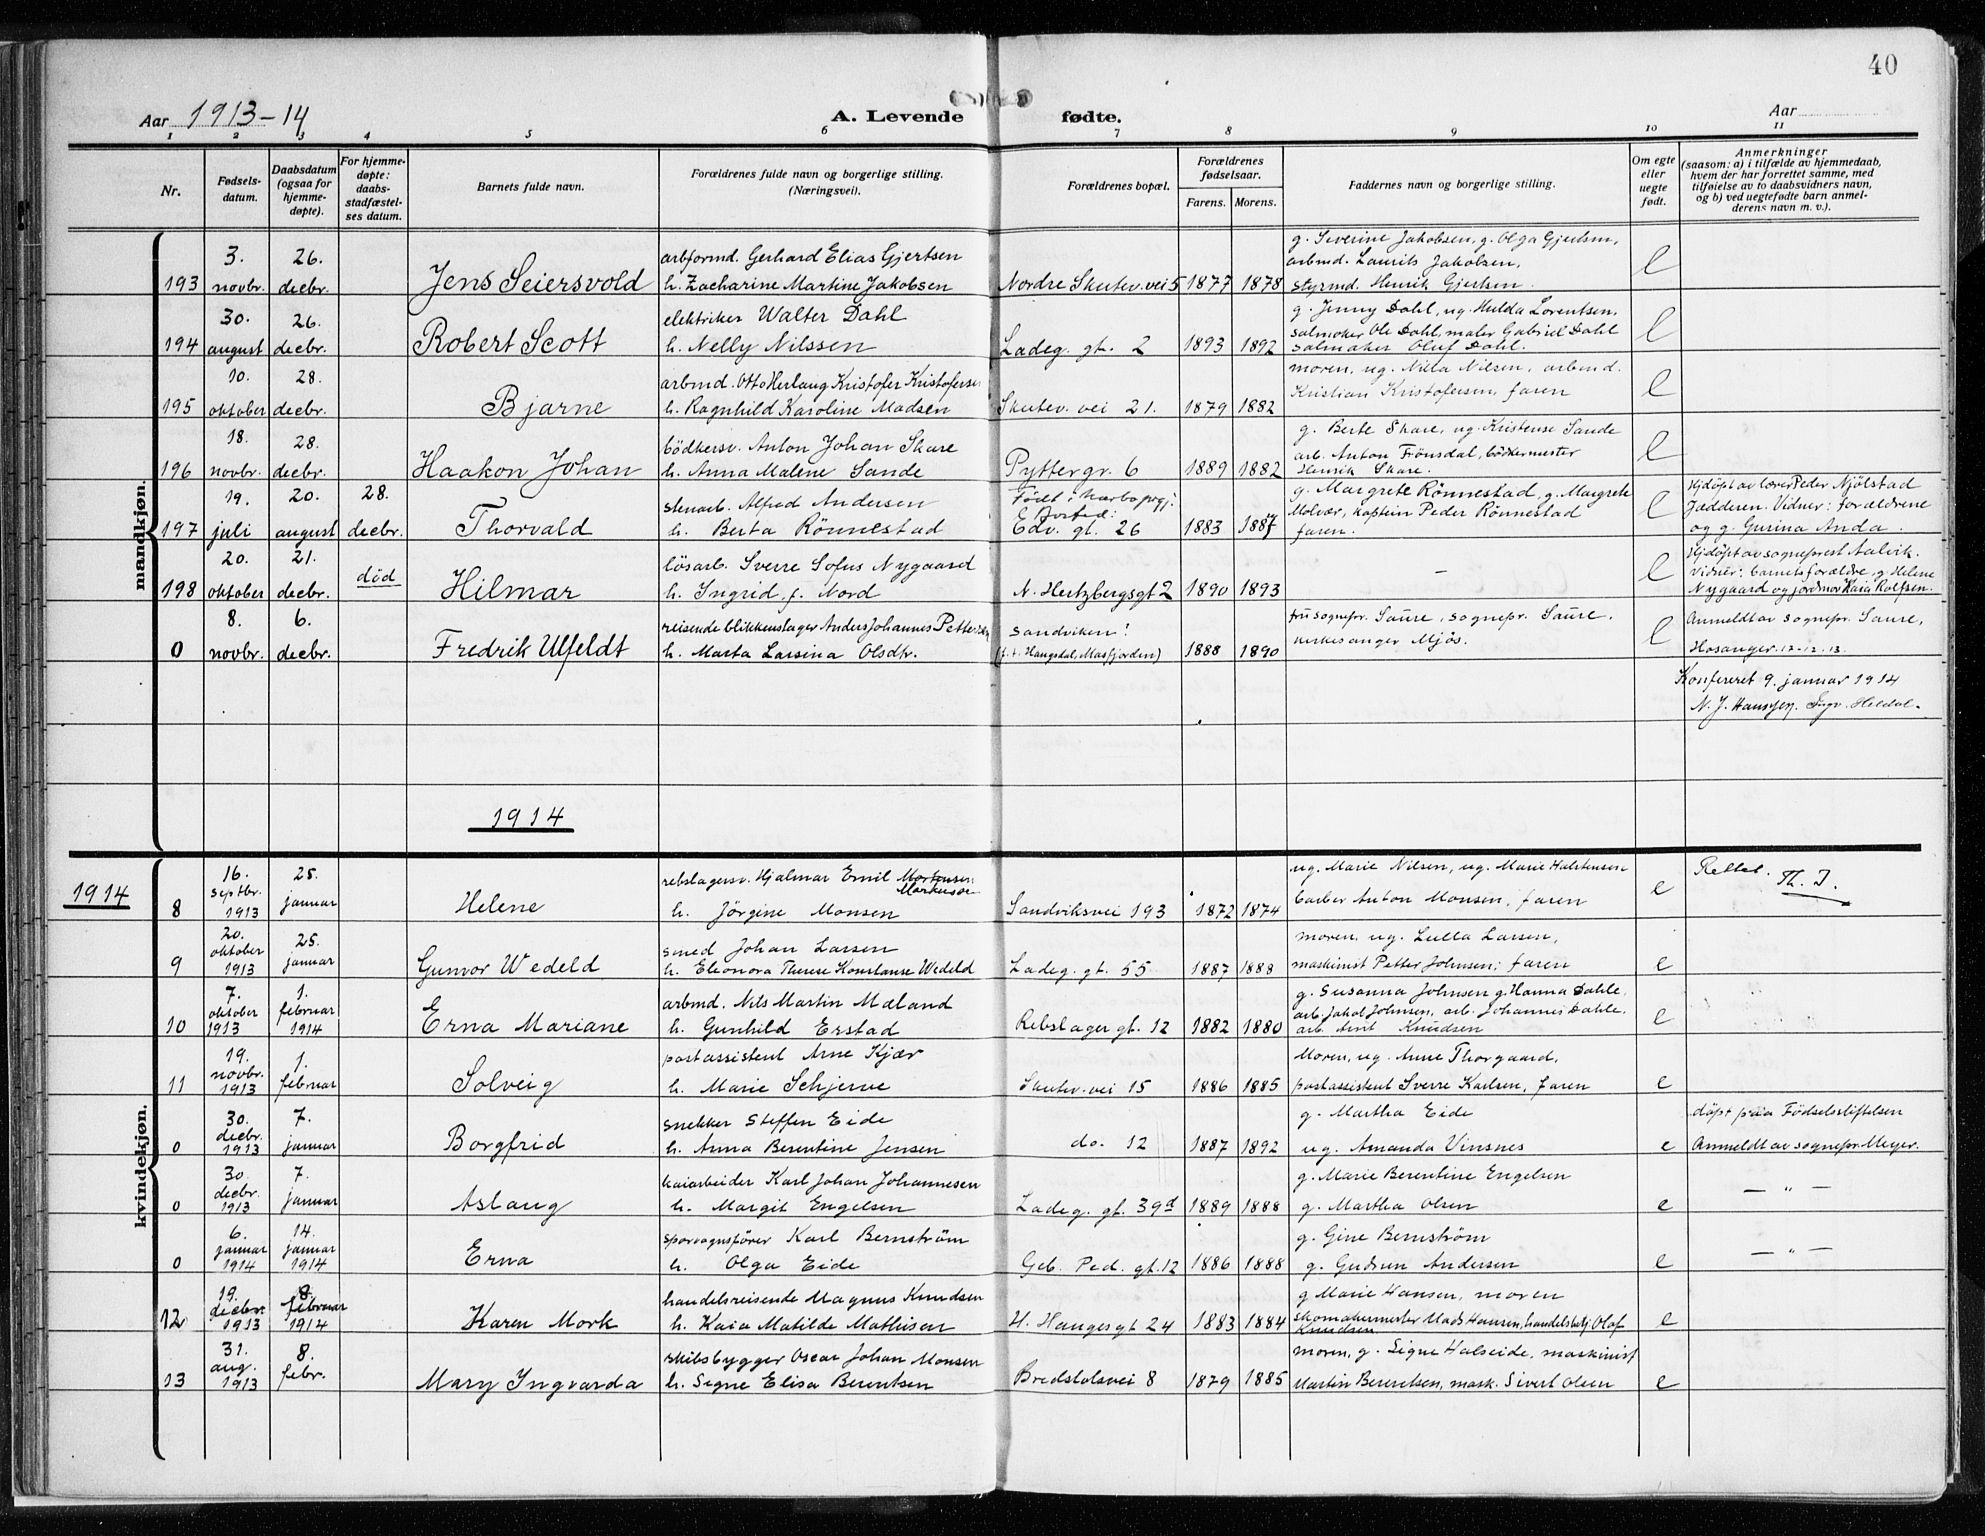 40
Aar 1913-14
A. Levende fødte.
Aar
1 2 3 4 5 6 7 8 9 10 11
Nr.
Fødsels-
datum.
Daabsdatum
(ogsaa for
hjemme-
døpte).
For hjemme-
døpte:
daabs-
stadfæstel-
ses datum.
Barnets fulde navn.
Forældrenes fulde navn og borgerlige stilling.
(Næringsvei).
Forældrenes bopæl.
Forældrenes
fødselsaar.
Farens. Morens.
Faddernes navn og borgerlige stilling.
Om egte
eller
uegte
født.
Anmerkninger
(saasom: a) i tilfælde av hjemmedaab,
hvem der har forrettet samme, med
tilføielse av to daabsvidners navn,
og b) ved uegtefødte barn anmel-
derens navn m. v.).
mandkjøn.
193
3.
novbr.
26.
decbr.
Jens Seiersvold
arbformd. Gerhard Elias Gjertsen
h. Zacharine Martine Jakobsen
Nordre Skutev. vei 5
1877 1878
g. Severine Jakobsen, g. Olga Gjertsen,
arbmd. Laurits Jakobsen,
styrmd. Henrik Gjertsen.
e
194
30.
august
26.
decbr.
Robert Scott
elektriker Walter Dahl
h. Nelly Nilssen
Ladeg. gt. 2
1893 1892
g. Jenny Dahl, ug. Hulda Lorentsen,
salmaker Ole Dahl, maler Gabriel Dahl
salmaker Oluf Dahl.
e
195
10.
oktober
28.
decbr.
Bjarne
arbmd. Otto Herlaug Kristofer Kristoferse
h. Ragnhild Karoline Madsen
Skutev. vei 21.
1879 1882
moren, ug. Nilla Nilsen, arbmd.
Kristian Kristofersen, faren
e
196
18.
novbr.
28.
decbr.
Haakon Johan
bödkersv. Anton Johan Skare
h. Anna Malene Sande
Pyttergr. 6
1889 1882
g. Berte Skare, ug. Kristense Sande
arb. Anton Fönsdal, bödkermester
Henrik Skare.
e
197
19.
juli
20.
august
28.
decbr.
Thorvald
stenarb. Alfred Andersen
h. Berta Rönnestad
Født i Nærbø
Edv. gt. 26
1883 1887
g. Margrete Rönnestad, g. Margrete
Molvær, kaptein Peder Rönnestad
faren.
e
Hjdöpt av lærer Peder Njölstad
Jædderen. Vidner: forældrene
og g. Gurina Anda.
198
20.
oktober
21.
decbr.
død
Hilmar
lösarb. Sverre Sofus Nygaard
h. Ingrid f. Nord
N. Hertzbergsgt 2
1890 1893
-
e
Hjdöpt av sogneprest Aalvik.
Vidner: barnets forældre, g. Helene
Nygaard og jordmor Kaia Rolfsen.
0
8.
novbr.
6.
decbr.
Fredrik Ulfeldt
reisende blikkenslager Anders Johannes Petter
h. Marta Larsina Olsdtr.
Sandviken!
(f. t. Haugsdal, Masfjorden)
1888 1890
fru sognepr. Saure, sognepr. Saure,
kirkesanger Mjös.
e
Anmeldt av sognepr. Saure,
Hosanger 12-12-13.
Konfereret 9. januar 1914
N. J. Hanssen. Ingv. Heldal.
1914
kvindekjøn.
1914
8
16.
septbr.
1913
25.
januar
Helene
rebslagersv. Hjalmar Emil Mortensen
Markusen
h. Jörgine Monsen
Sandviksvei 193
1872 1874
ug. Marie Nilsen, ug. Marie Halstensen
barber Anton Monsen, faren
e
Rettet.
Th. I.
9
20.
oktober
1913
25.
januar
Gunvor Wedeld
smed Johan Larsen
h. Eleonora Therese Konstanse Wedeld
Ladeg. gt. 55
1887 1888
moren, ug. Lulla Larsen,
maskinist Petter Johnsen, faren
e
10
7.
oktober
1913
1.
februar
1914
Erna Mariane
arbmd. Nils Martin Mæland
h. Gunhild Erstad
Rebslager gt. 12
1882 1880
g. Susanna Johnsen g. Hanna Dahle,
arb. Jakob Johnsen, arb. Johannes Dahle,
arb. Arnt Knudsen
e
11
19.
novbr.
1913
1.
februar
Solveig
postassistent Arne Kjær
h. Marie Schjerve
Skutev. vei 15
1886 1885
Moren, ug. Anne Thorgaard,
postassistent Sverre Karlsen, faren
e
0
30.
decbr.
1913
7.
januar
Borgfrid
snekker Steffen Eide
h. Anna Berentine Jensen
do. 12
1887 1892
g. Martha Eide
ug. Amanda Vinsnes
e
döpt paa Födselsstiftelsen
Anmeldt av sognepr. Meyer.
0
30.
decbr.
1913
7.
januar
Aslaug
kaiarbeider Karl Johan Johannesen
h. Margit Engelsen
Ladeg. gt. 39d
1889 1888
g. Marie Berentine Engelsen
g. Martha Olsen
e
— " —
0
6.
januar
1914
14.
januar
1914
Erna
sporvognsfører Karl Bernström
h. Olga Eide
Geb. Ped. gt. 12
1886 1888
g. Gine Bernström
g. Gudrun Andersen
e
— " —
12
19.
decbr.
1913
8.
februar
1914
Karen Mork
handelsreisende Magnus Knudsen
h. Kaia Matilde Mathisen
H. Hauges gt 24
1883 1884
g Marie Hansen, moren
skomakermester Mads Hansen, handelsbetj. Olaf
Knudsen
e
13
31.
aug.
1913
8.
febr.
Mary Ingvarda
skibsbygger Oscar Johan Monsen
h. Signe Elisa Berentsen
Bredstolsvei 8
1879 1885
moren, g. Signe Halseide, maskinist
Martin Berentsen, mask. Sivert Olsen
e